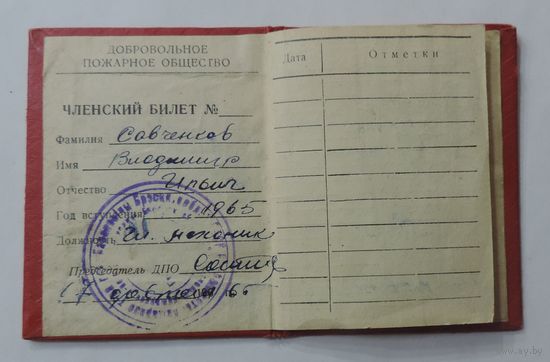 ДОБРОВОЛЬНОЕ
ПОЖАРНОЕ ОБЩЕСТВО
ЧЛЕНСКИЙ БИЛЕТ №
Фамилия Савченков
Имя Владимир
Отчество Ильич
Год вступления 1965
Должность Гл. механик
Председатель ДПО
17
Дата Отметки
www.ay.by